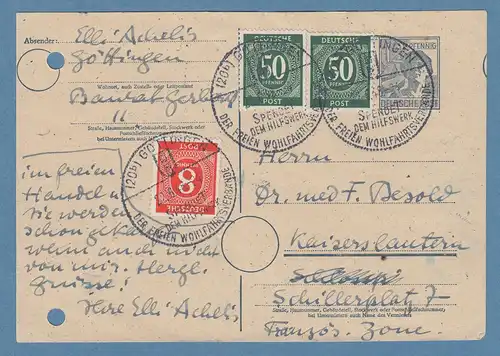 Absender: Elli Achelis
Göttingen
Wohnort, auch Zustell- oder Leitpostamt
11
Straße, Hausnummer, Gebäudeteil, Stockwerk oder Postschließfachnummer,
im freien
Handel u.
Sie werden
schon
wenn auch nicht
von mir. Herzl.
Grüsse!
Ihre Elli Achelis
DEUTSCHE
50
PFENNIG
POST
DEUTSCHE
50
PFENNIG
POST
PFENNIG
DEUTSCHE POST
(20b) GÖTTINGEN
SPENDET
DEM HILFSWERK
DER FREIEN WOHLFAHRTSVERBÄNDE
(20b) GÖTTINGEN
SPENDET
DEM HILFSWERK
DER FREIEN WOHLFAHRTSVERBÄNDE
DEUTSCHE
8
PFENNIG
POST
(20b) GÖTTINGEN
DER FREIEN WOHLFAHRTSVERBÄNDE
Herrn
Dr. med F. Besold
Kaiserslautern
Schillerplatz 7
Straße, Hausnummer, Gebäudeteil, Stockwerk oder Postschließfachnummer,
bei Untermietern auch Name des Vermieters
Französ. Zone.